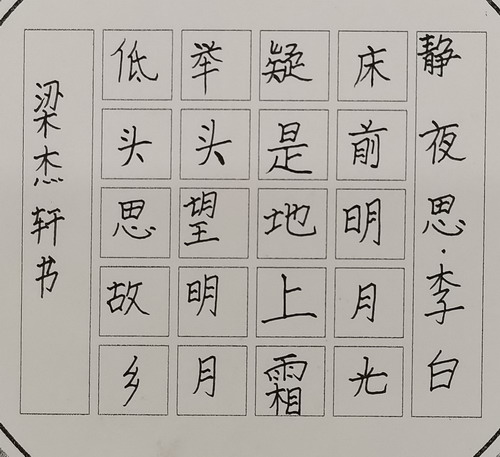 静夜思·李白
床前明月光
疑是地上霜
举头望明月
低头思故乡
梁杰轩书